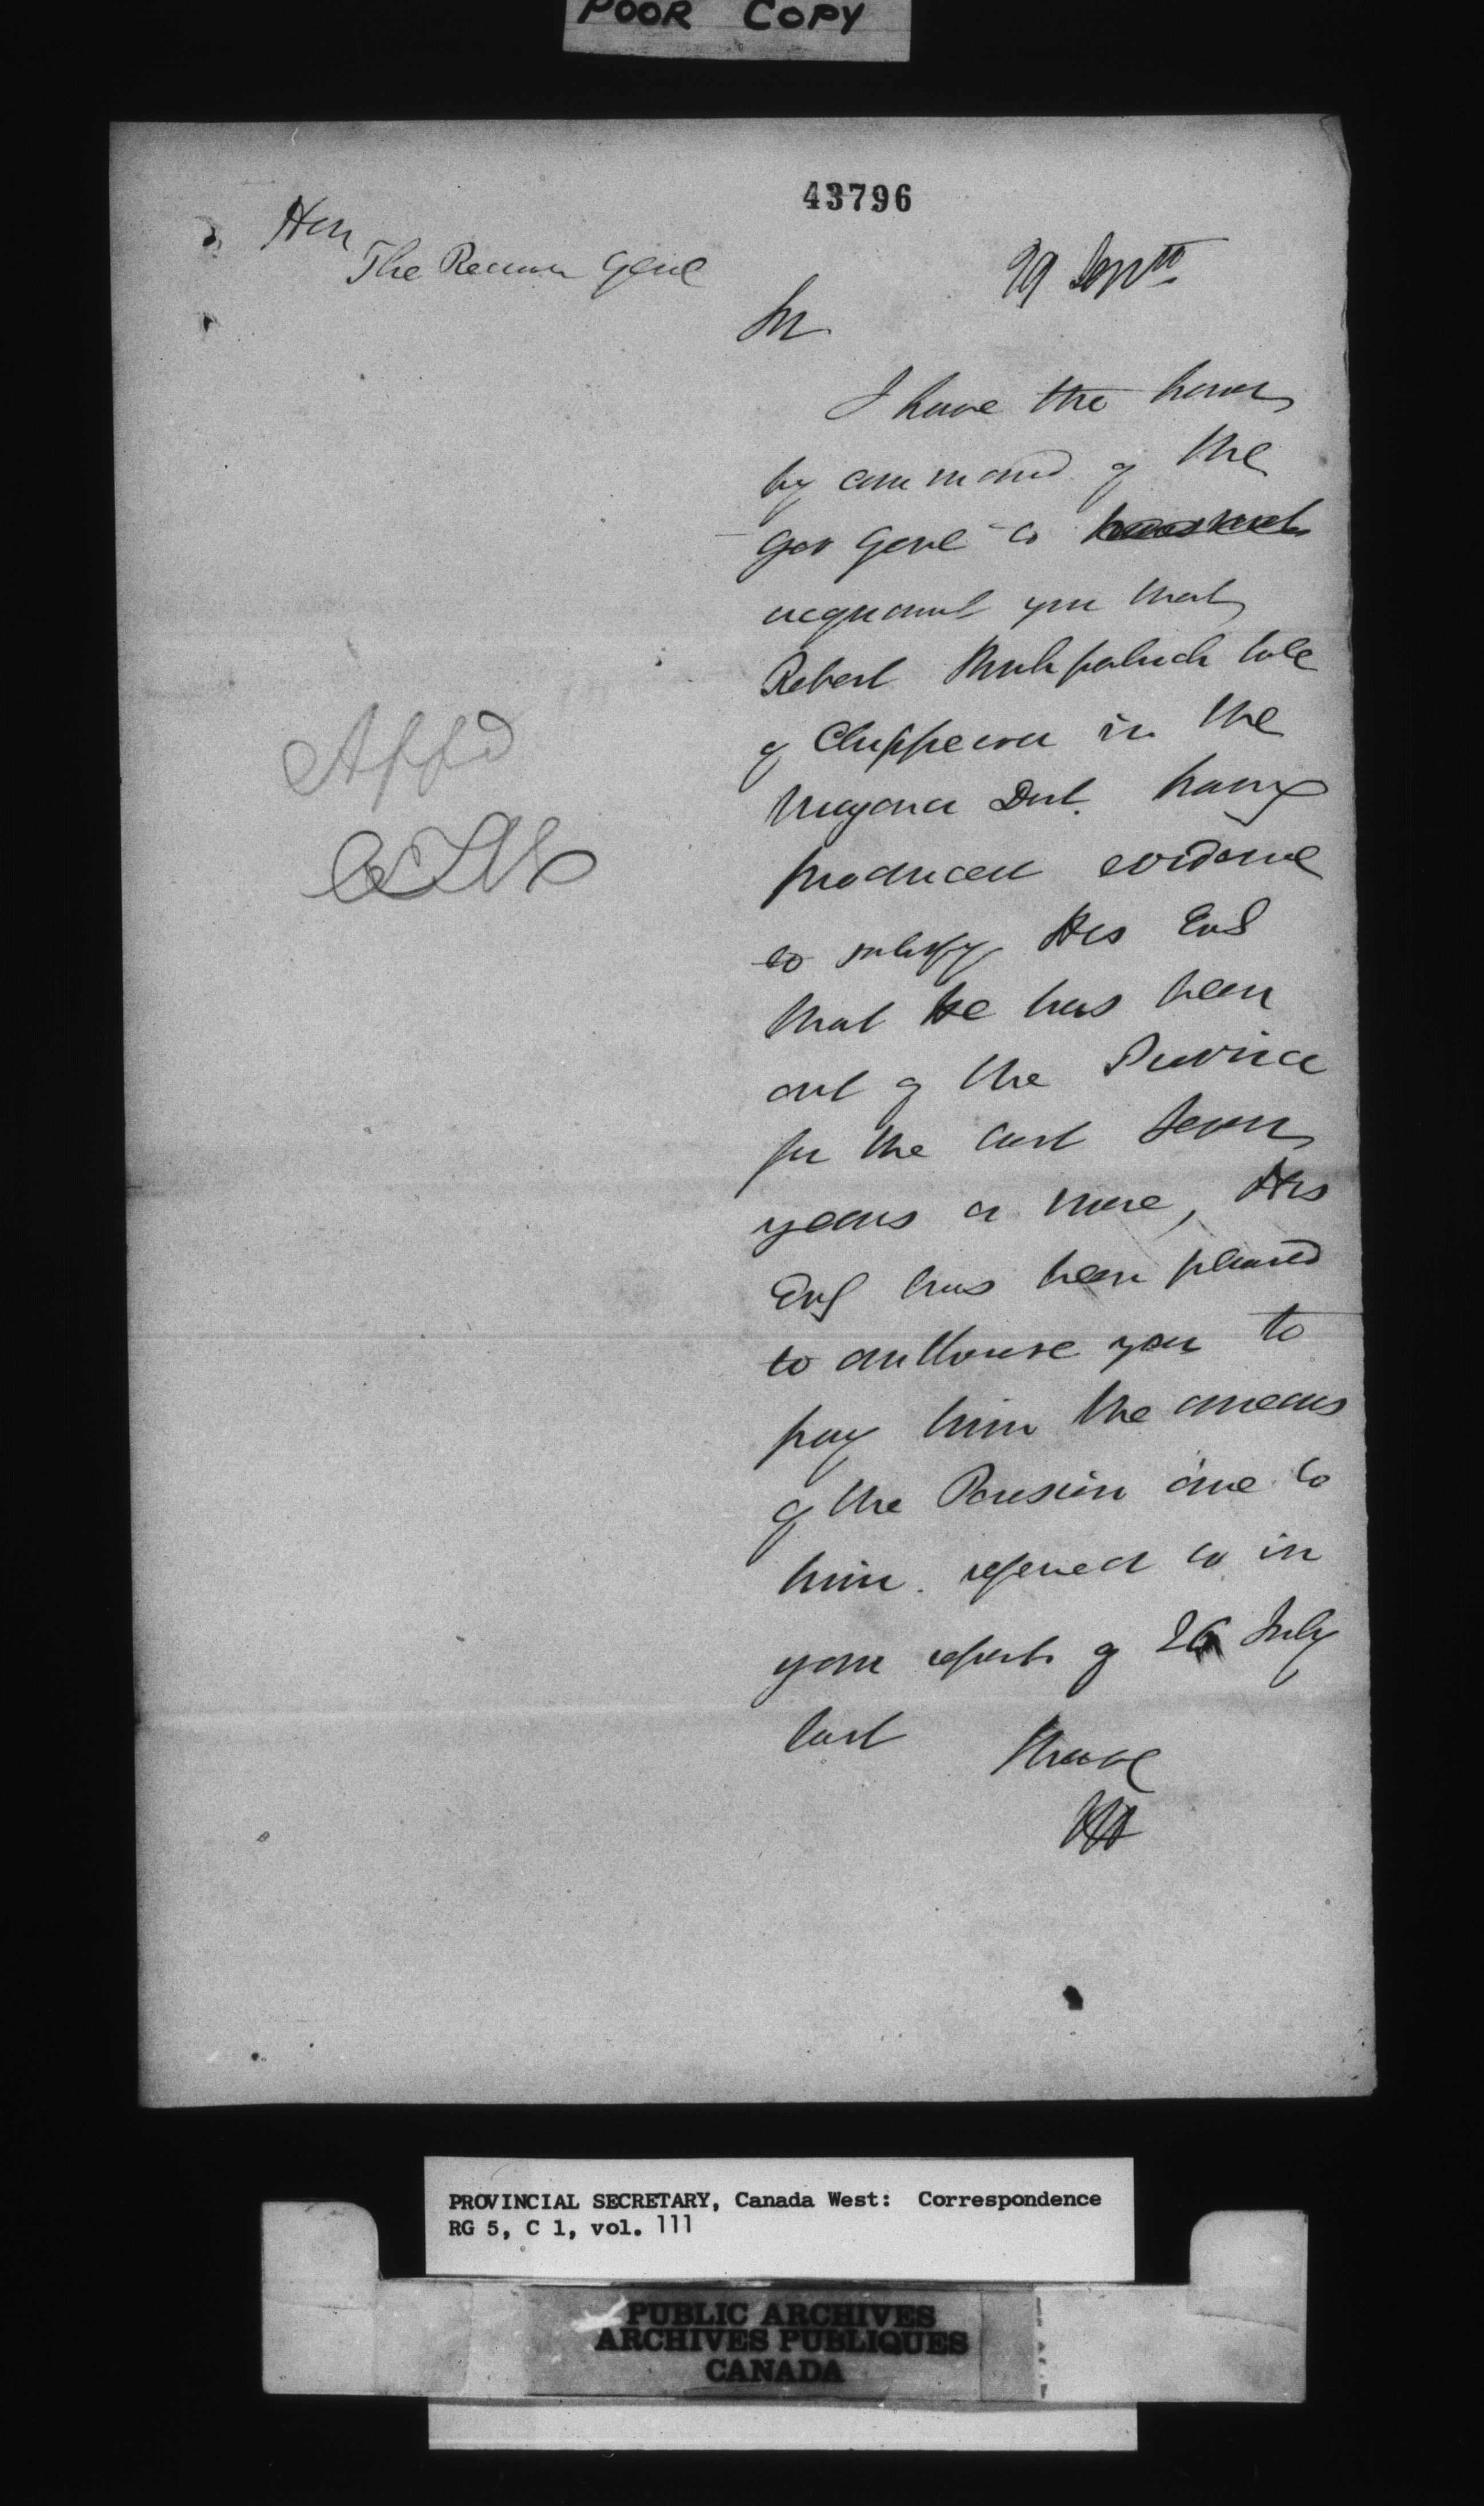 POOR COPY
43796
Hon
The Receiver Genl
29 Septr
Sir
I have the honor
by command of the
Gov Genl to
acquaint you that
Robert Kirkpatrick late
of Chippewa in the
Niagara Dist. having
produced evidence
to satisfy His Exc
that he has been
out of the Province
for the last Seven
years or more, His
Exc has been pleased
to authorise you to
pay him the arrears
of the Pension due to
him referred to in
your report of 26 July
last I have
Appd
PROVINCIAL SECRETARY, Canada West: Correspondence
RG 5, C 1, vol. 111
PUBLIC ARCHIVES
ARCHIVES PUBLIQUES
CANADA